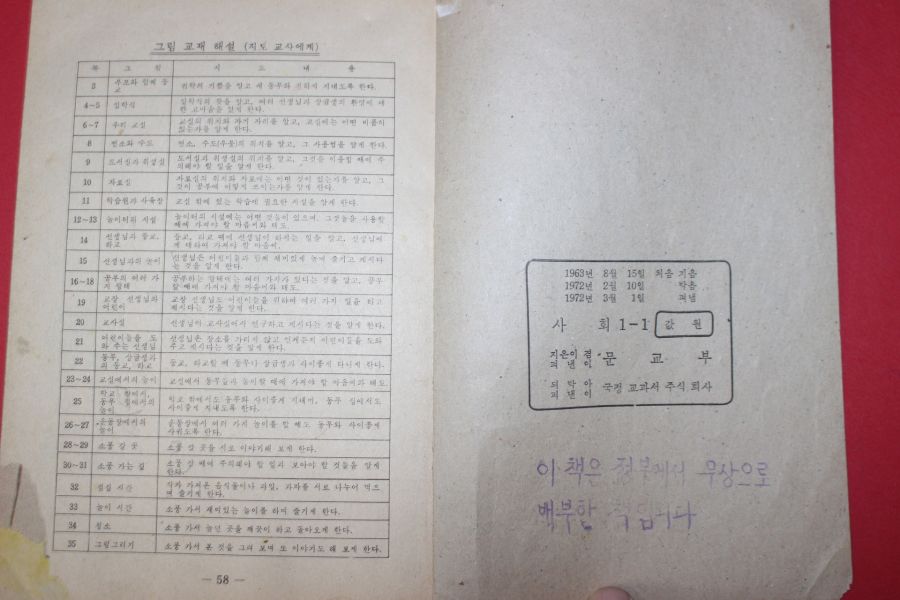 그림 교재 해설 (지도 교사에게)
쪽 그 림 지 도 내 용
3 부모와 함께 등교 입학의 기쁨을 알고 새 동무와 친하게 지내도록 한다.
4~5 입학식 입학식의 뜻을 알고, 여러 선생님과 상급생의 환영에 대한 고마움을 알게 한다.
6~7 우리 교실 교실의 위치와 자기 자리를 알고, 교실에는 어떤 비품이 있는가를 알게 한다.
8 변소와 수도 변소, 수도(우물)의 위치를 알고, 그 사용법을 알게 한다.
9 도서실과 위생실 도서실과 위생실의 위치를 알고, 그것을 이용할 때에 주의해야 할 일을 알게 한다.
10 자료실 자료실의 위치와 자료에는 어떤 것이 있는가를 알고, 그것이 공부에 어떻게 쓰이는가를 알게 한다.
11 학습원과 사육장 교실 밖에 있는 학습에 필요한 시설을 알게 한다.
12~13 놀이터와 시설 놀이터의 시설에는 어떤 것들이 있으며, 그것들을 사용할 때에 가져야 할 마음씨와 태도.
14 선생님과 등교, 하교 등교, 하교 때에 선생님이 하시는 일을 알고, 선생님에게 대하여 가져야 할 마음씨.
15 선생님과의 놀이 선생님은 어린이들과 함께 재미있게 놀며 즐기고 계시다는 것을 알게 한다.
16~18 공부의 여러 가지 형태 공부하는 형태에는 여러 가지가 있다는 것을 알고, 공부할 때에 가져야 할 마음씨와 태도.
19 교장 선생님과 어린이 교장 선생님도 어린이들을 위하여 여러 가지 일을 하고 계시다는 것을 알게 한다.
20 교사실 선생님이 교사실에서 연구하고 계시다는 것을 알게 한다.
21 어린이들을 도와 주는 선생님 선생님은 장소를 가리지 않고 언제든지 어린이들을 도와 주고 계시다는 것을 알게 한다.
22 동무, 상급생과의 등교, 하교 등교, 하교할 때 동무나 상급생과 사이좋게 다니게 한다.
23~24 교실에서의 놀이 교실에서 동무들과 놀이할 때에 가져야 할 마음씨와 태도.
25 학교 밖에서, 동무 집에서의 놀이 학교 밖에서도 동무와 사이좋게 지내며, 동무 집에서도 사이좋게 지내도록 한다.
26~27 운동장에서의 놀이 운동장에서 여러 가지 놀이를 할 때도 동무와 사이좋게 사귀도록 한다.
28~29 소풍 갈 곳 소풍 갈 곳을 서로 이야기해 보게 한다.
30~31 소풍 가는 길 소풍 갈 때에 주의해야 할 일과 보아야 할 것들을 알게 한다.
32 점심 시간 각자 가져온 음식물이나 과일, 과자를 서로 나누어 먹으며 즐기게 한다.
33 놀이 시간 소풍 가서 재미있는 놀이를 하며 즐기게 한다.
34 청소 소풍 가서 놀던 곳을 깨끗이 하고 돌아오게 한다.
35 그림그리기 소풍 가서 본 것을 그려 보며 또 이야기도 해 보게 한다.
— 58 —
1963년 8월 15일 처음 지음
1972년 2월 10일 박음
1972년 3월 1일 펴냄
사 회 1-1 값 원
지은이 겸 펴낸이 문 교 부
되박아 펴낸이 국정 교과서 주식 회사
이 책은 정부에서 무상으로
배부한 책입니다